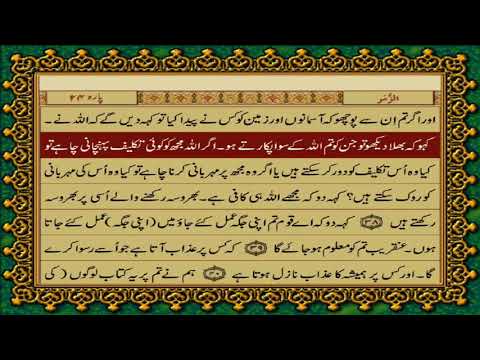 پارہ ۲۴ الزُّمَر
اور اگر تم ان سے پوچھو کہ آسمانوں اور زمین کو کس نے پیدا کیا تو کہہ دیں گے کہ اللہ نے ۔
کہو کہ بھلا دیکھو تو جن کو تم اللہ کے سوا پکارتے ہو۔ اگر اللہ مجھ کو کوئی تکلیف پہنچانی چاہے تو
کیا وہ اُس تکلیف کو دور کر سکتے ہیں یا اگر وہ مجھ پر مہربانی کرنا چاہے تو کیا وہ اُس کی مہربانی
کو روک سکتے ہیں؟ کہہ دو کہ مجھے اللہ ہی کافی ہے۔ بھروسہ رکھنے والے اُسی پر بھروسہ
رکھتے ہیں ﴿۳۸﴾ کہہ دو کہ اے قوم تم اپنی جگہ عمل کئے جاؤ میں (اپنی جگہ) عمل کئے جاتا
ہوں۔ عنقریب تم کو معلوم ہو جائے گا ﴿۳۹﴾ کہ کس پر عذاب آتا ہے جو اُسے رسوا کرے
گا ۔ اور کس پر ہمیشہ کا عذاب نازل ہوتا ہے ﴿۴۰﴾ ہم نے تم پر یہ کتاب لوگوں (کی